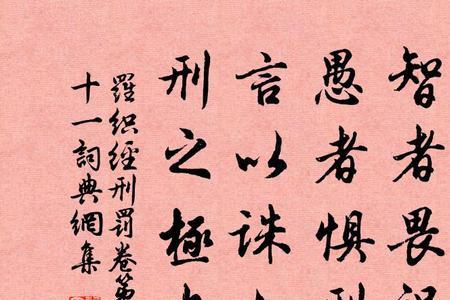 智者畏
愚者惧
言以诛
刑之極
羅织經刑罰卷第
十一詞典網集